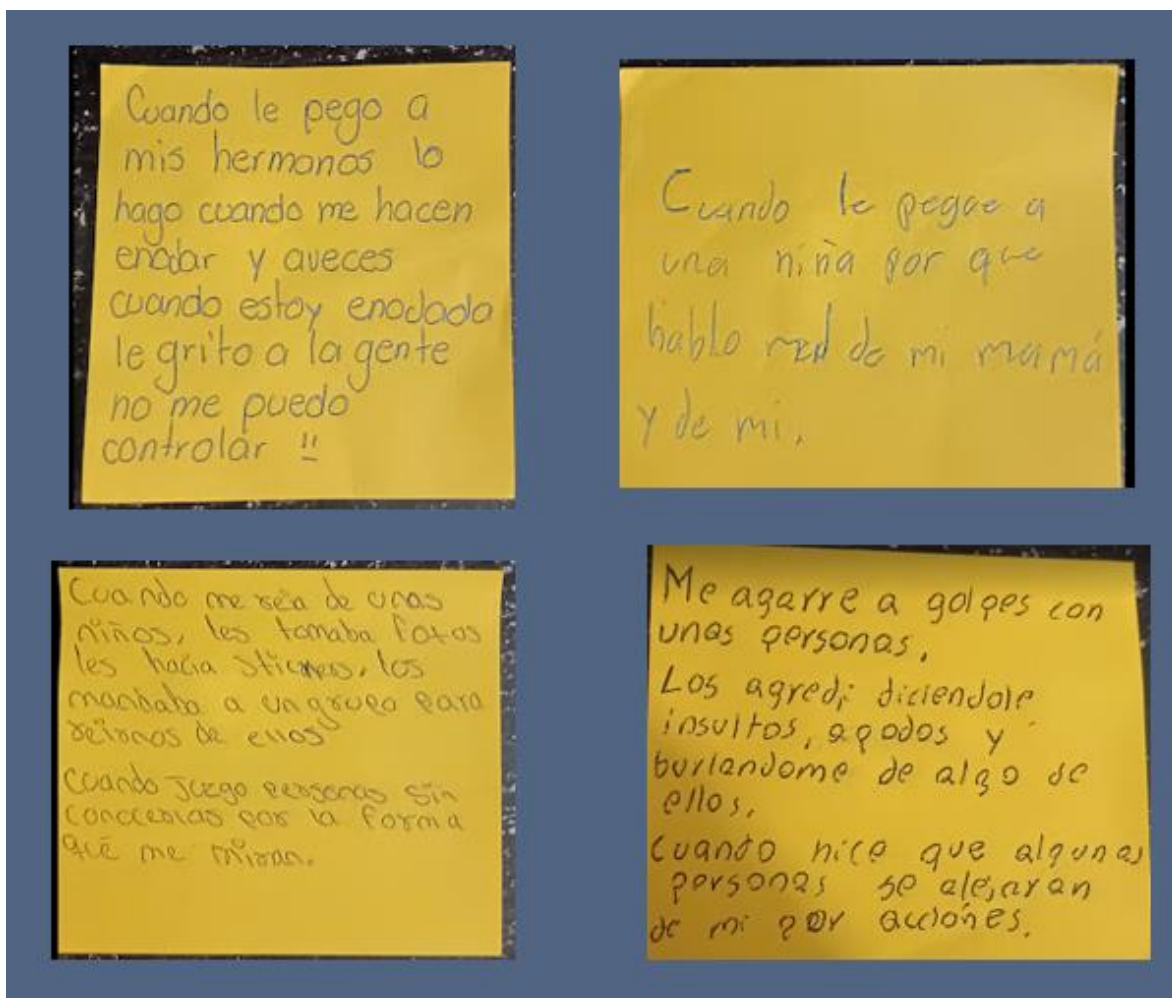 Cuando le pego a
mis hermanos lo
hago cuando me hacen
enodar y aveces
cuando estoy enodada
le grito a la gente
no me puedo
controlar !!
Cuando le pegue a
una niña por que
hablo mal de mi mamá
y de mi.
Cuando me reia de unos
niños, les tomaba fotos
les hacia stickers, los
mandaba a un grupo para
reirnos de ellos
Cuando juzgo personas sin
conocerlas por la forma
que me miran.
Me agarre a golpes con
unas personas.
Los agredi diciendole
insultos, apodos y
burlandome de algo de
ellos.
Cuando hice que algunas
personas se alejaran
de mi por acciónes.